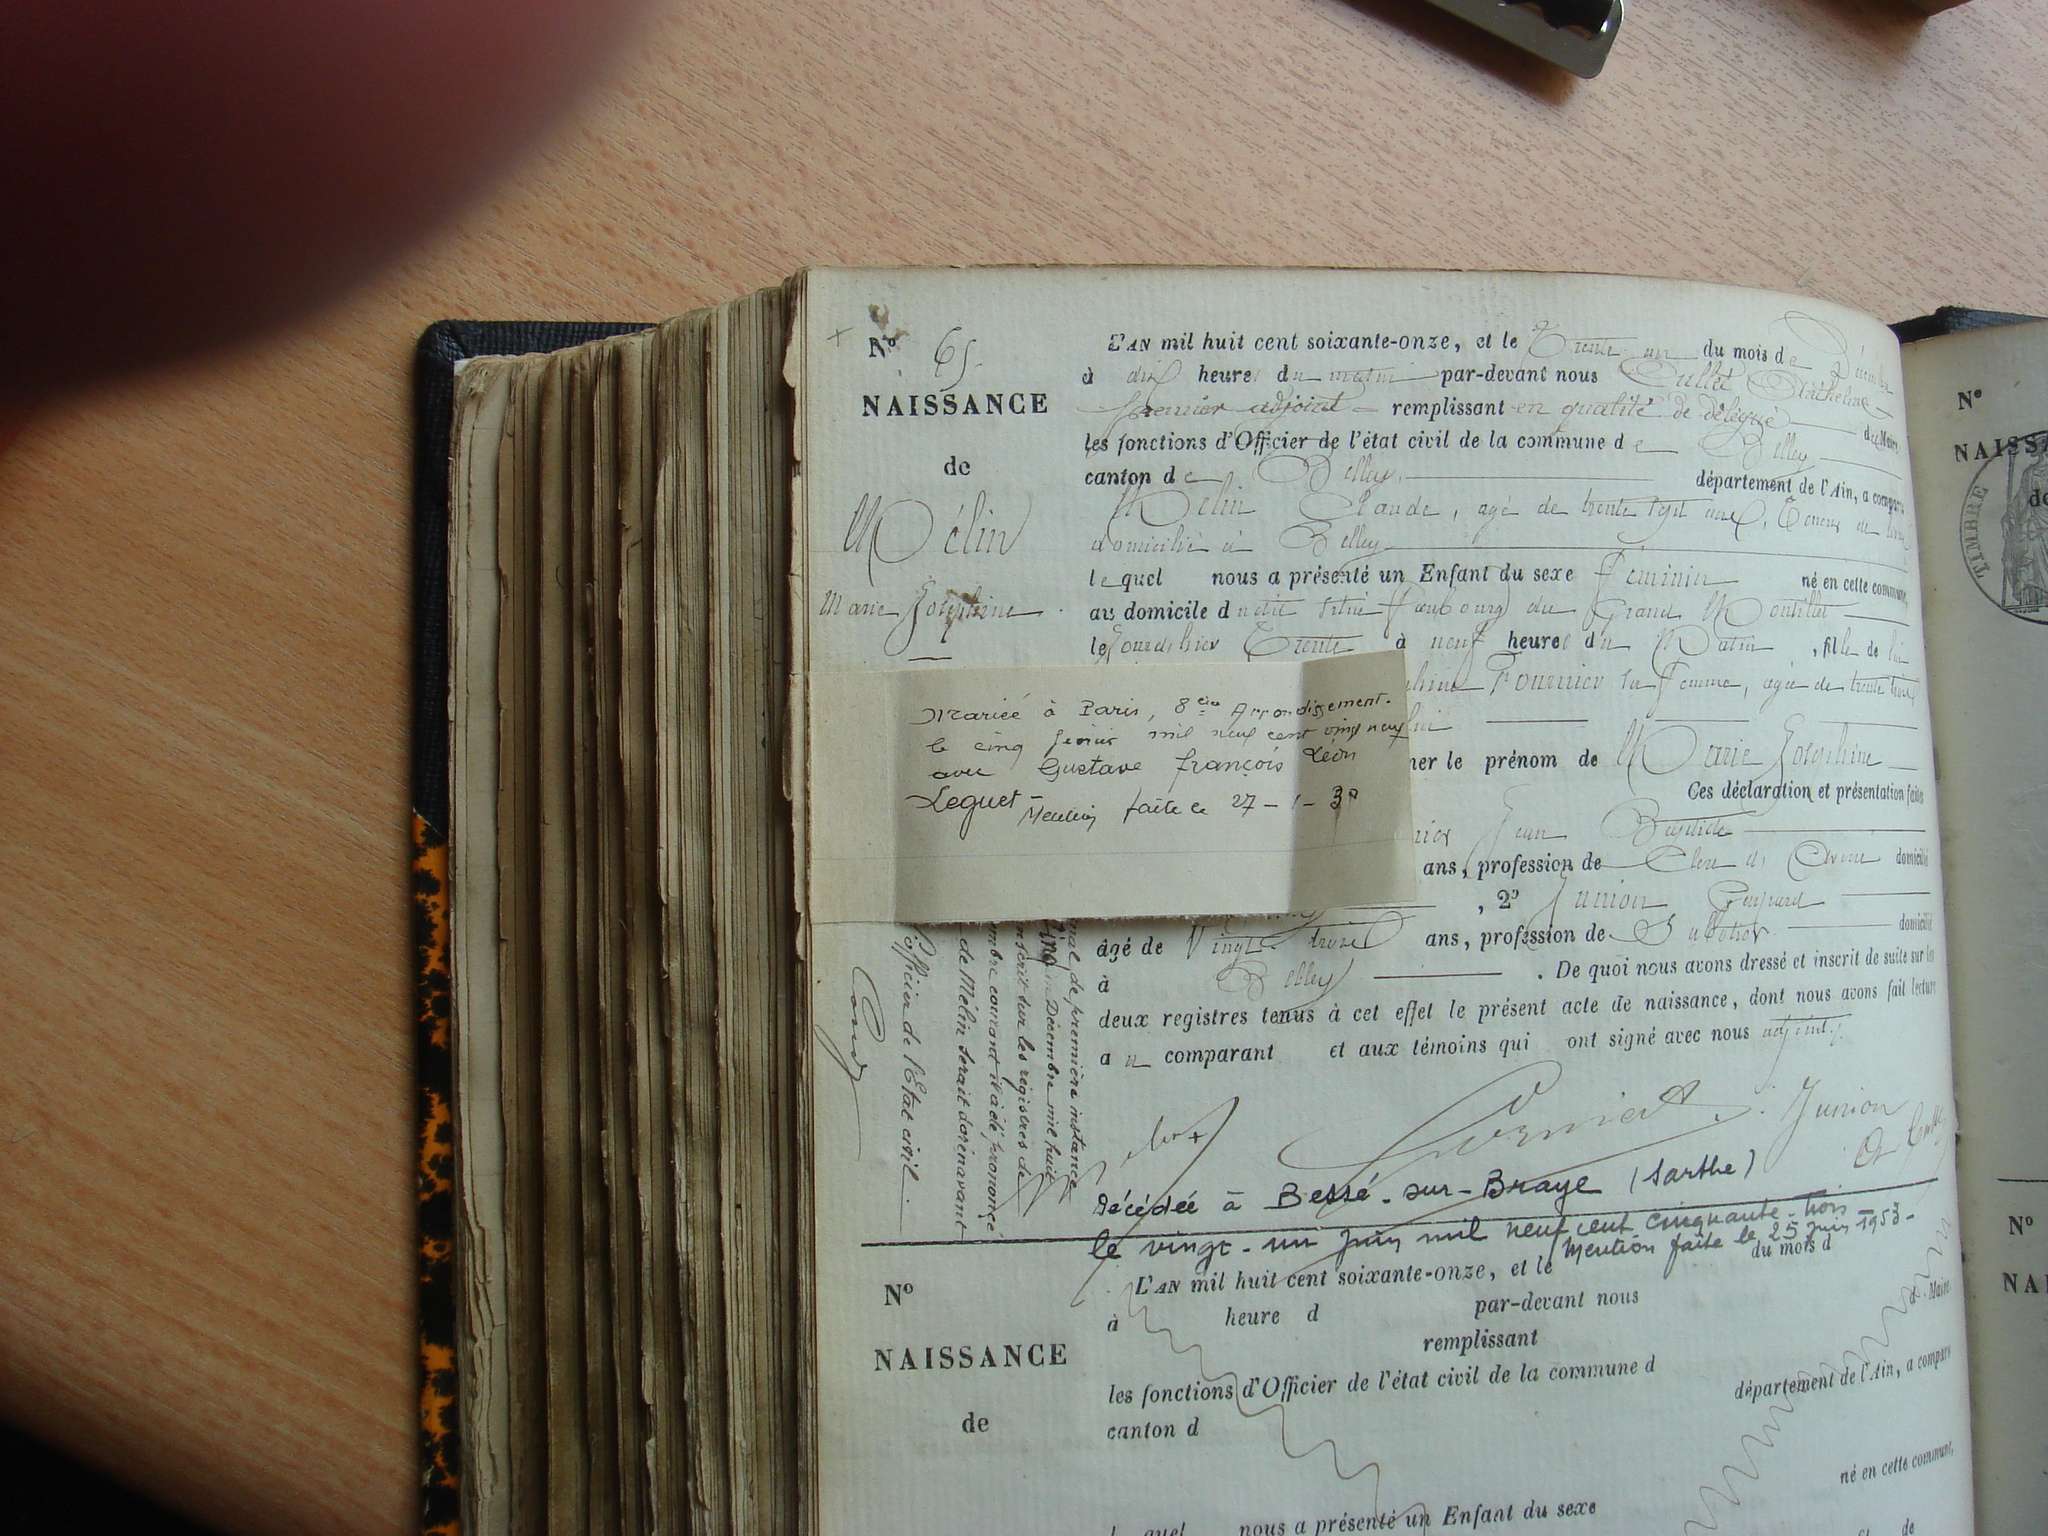 N° 65.
NAISSANCE
de
Mélin
Marie Joséphine
L'AN mil huit cent soixante-onze, et le Trente un du mois de Décembre
à dix heures du matin par-devant nous Cullet Anthelme
premier adjoint remplissant en qualité de délégué du Maire
les fonctions d'Officier de l'état civil de la commune de Belley
canton de Belley département de l'Ain, a comparu
Mélin Claude, agé de trente sept ans, Teneur de livres
domicilié à Belley
lequel nous a présenté un Enfant du sexe féminin né en cette commune,
au domicile dudit situé faubourg du Grand Montillet
le jour d'hier Trente à neuf heures du Matin, fille de lui
phine Fournier sa femme, agée de trente trois
ner le prénom de Marie Joséphine
Ces déclaration et présentation faites
nier Jean Baptiste
ans, profession de Clerc d'Avoué domicilié
, 2° Junion Gaspard
âgé de Vingt trois ans, profession de Sabotier domicilié
à Belley. De quoi nous avons dressé et inscrit de suite sur les
deux registres tenus à cet effet le présent acte de naissance, dont nous avons fait lecture
au comparant et aux témoins qui ont signé avec nous adjoint.
Mariée à Paris, 8eme Arrondissement.
le cinq février mil neuf cent vingt neuf
avec Gustave françois Léon
Leguet -
Mention faite le 27 - 1 - 30
nal de première instance
cinq Décembre mil huit
nscrit sur les registres de
mbre courant il a été prononcé
de Mélin serait dorénavant
l'officier de l'Etat civil.
Junion
Décédée à Bessé-sur-Braye (Sarthe)
le vingt-un Juin mil neuf cent cinquante-trois
Mention faite le 25 Juin 1953-
N°
NAISSANCE
de
L'AN mil huit cent soixante-onze, et le du mois d
à heure d par-devant nous
remplissant d Maire
les fonctions d'Officier de l'état civil de la commune d
canton d département de l'Ain, a comparu
né en cette commune,
l quel nous a présenté un Enfant du sexe
de
N°
NAISSA
de
TIMBRE
N°
NAI